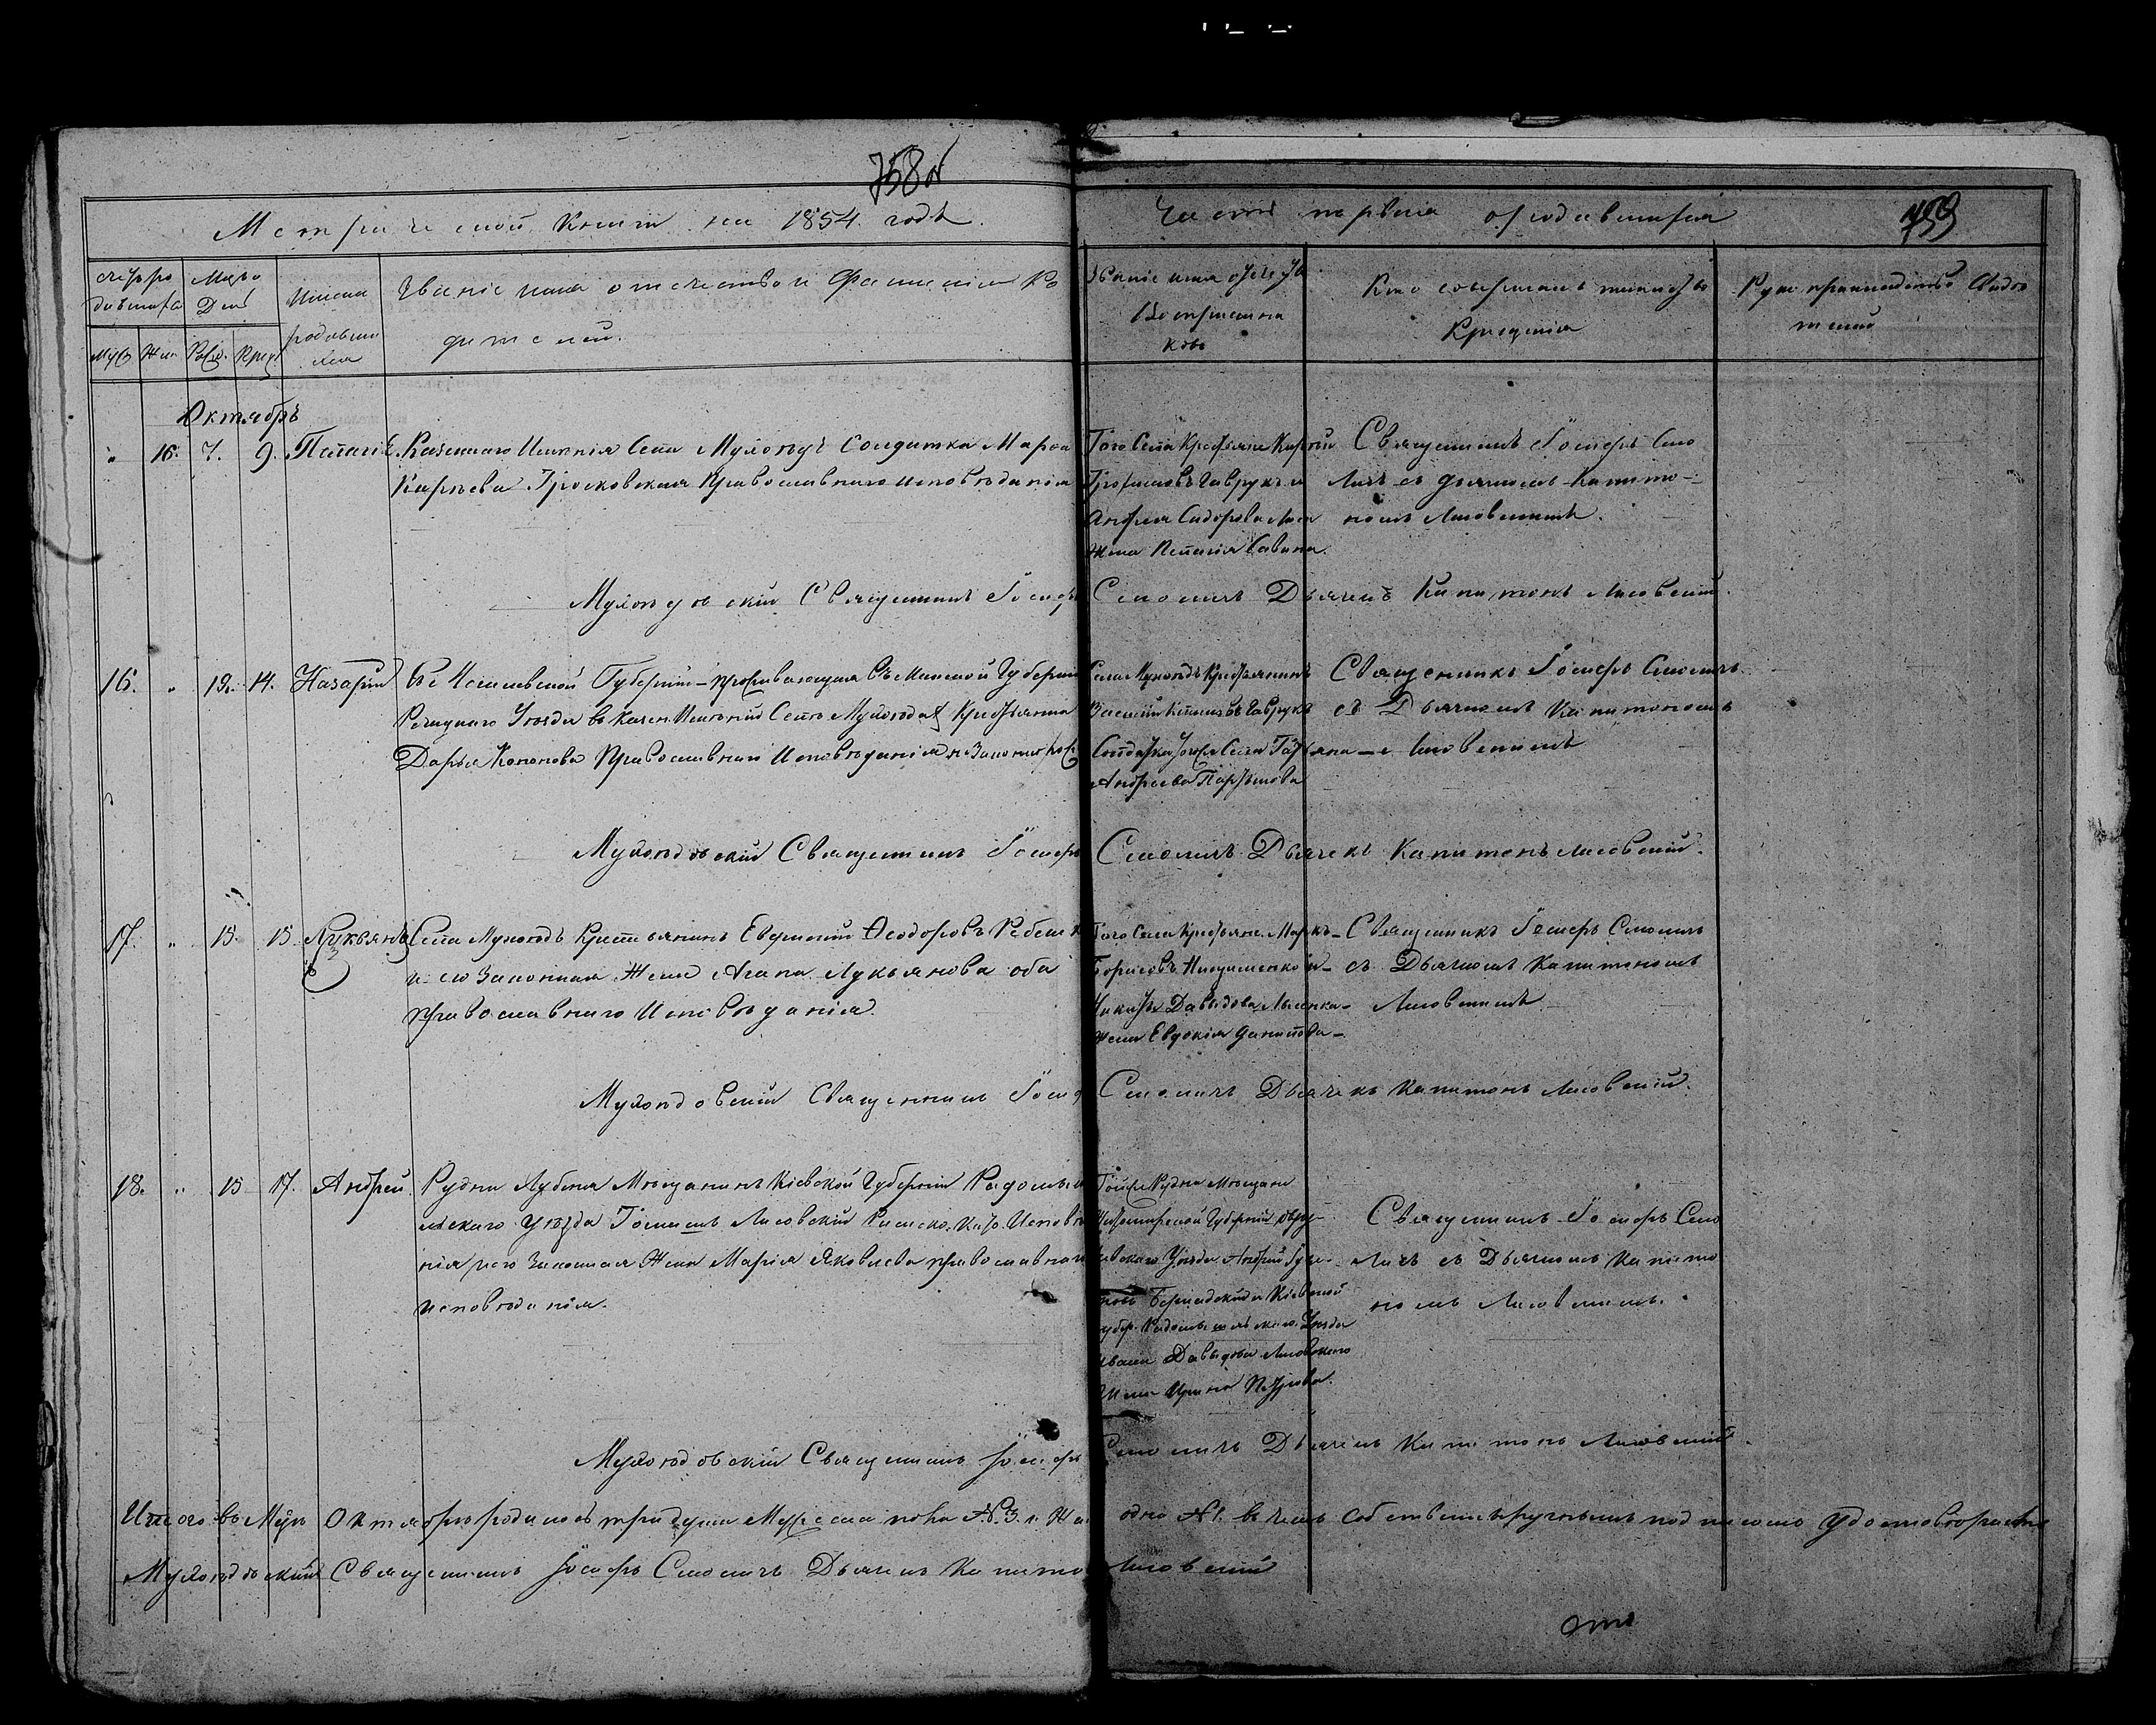 758 об
Метрической книги на 1854 годъ.
Часть первая о родившихся
759
Счетъ родившихся
Мужс
Жен
Мцъ и День
Рожд.
Крещ.
Имена родившихся
Званіе имя отчество и фамилія Родителей.
Званіе имя отчество Воспріемниковъ
Кто совершалъ таинство Крещенія
Рукоприкладство Свидетелей
Октябрь
" 16. 7. 9. Пелагія. Казеннаго Именія Села Мухоѣдъ Солдатка Марѳа
Карпѣева Православнаго исповѣданія
Того Села Крестьяне Карпъ
Трофимовъ Гаврукъ и
Андрея Сидорова
жена Пелагія Савина.
Священникъ Іосифъ Смо
личъ съ Дьячкомъ Капито-
номъ Лисовскимъ.
Мухоѣдовскій Священникъ Іосифъ Смоличъ Дьячекъ Капитонъ Лисовскій.
16. " 13. 14. Назарій Могилевской Губерніи проживающая въ Минской Губерніи
Речицкаго Уѣзда въ Казен. Именіи Селѣ Мухоѣдахъ Крестьянка
Дарья Кононова Православнаго Исповѣданія незаконнорож.
Села Мухоѣдъ Крестьянинъ
Гаврукъ
Солдатка Села Татьяна
Андреева
Священникъ Іосифъ Смоличъ
съ Дьячкомъ Капитономъ
Лисовскимъ
Мухоѣдовскій Священникъ Іосифъ Смоличъ Дьячекъ Капитонъ Лисовскій.
17. " 15. 15 Лукьянъ Села Мухоѣдъ Крестьянинъ Евгеній Ѳеодоровъ
и его Законная Жена Агапа Лукьянова оба
православнаго Исповѣданія.
Того Села Крестьяне Маркъ
Борисовъ и
Давыдова
жена Евдокія Данилова
Священникъ Іосифъ Смоличъ
съ Дьячкомъ Капитономъ
Лисовскимъ
Мухоѣдовскій Священникъ Іосифъ Смоличъ Дьячекъ Капитонъ Лисовскій.
18. " 15 17. Андрей. Рудни Мѣщанинъ Кіевской Губерніи Радомы
сльскаго Уѣзда Лисовскій Римско. Като. Исповѣда
нія и его Законная Жена Марія Яковлева православнаго
исповѣданія.
Той же Рудни Мѣщане
Житомирской Губерніи Овру
чевскаго Уѣзда Андрей
и Кіевской
Губер. Радомысльскаго Уѣзда
Ивана Давыдова Лисовскаго
Жена Ирина Петрова.
Священникъ Іосифъ Смо
личъ съ Дьячкомъ Капито
номъ Лисовскимъ.
Мухоѣдовскій Священникъ Іосифъ Смоличъ Дьячекъ Капитонъ Лисовскій.
Итого въ Мцѣ Октябрѣ родилось три души Мужеска пола №3. и Же. одна №1. въ чемъ собственноручнымъ подписомъ удостовѣряемъ
Мухоѣдовскій Священникъ Іосифъ Смоличъ Дьячекъ Капитонъ Лисовскій